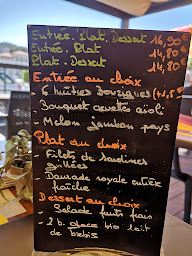 Entrée. Plat. Dessert 16,90€
Entrée. Plat 14,90
Plat. Dessert 14,80€
Entrée au choix
- 6 huîtres bouzigues (+1,5
- Bouquet crevette aïoli
- Melon jambon pays
Plat au choix
- Filets de sardines
grillées
- Daurade royale entière
fraîche
Dessert au choix
- Salade fruits frais
- 2 b. glace bio lait
de brebis